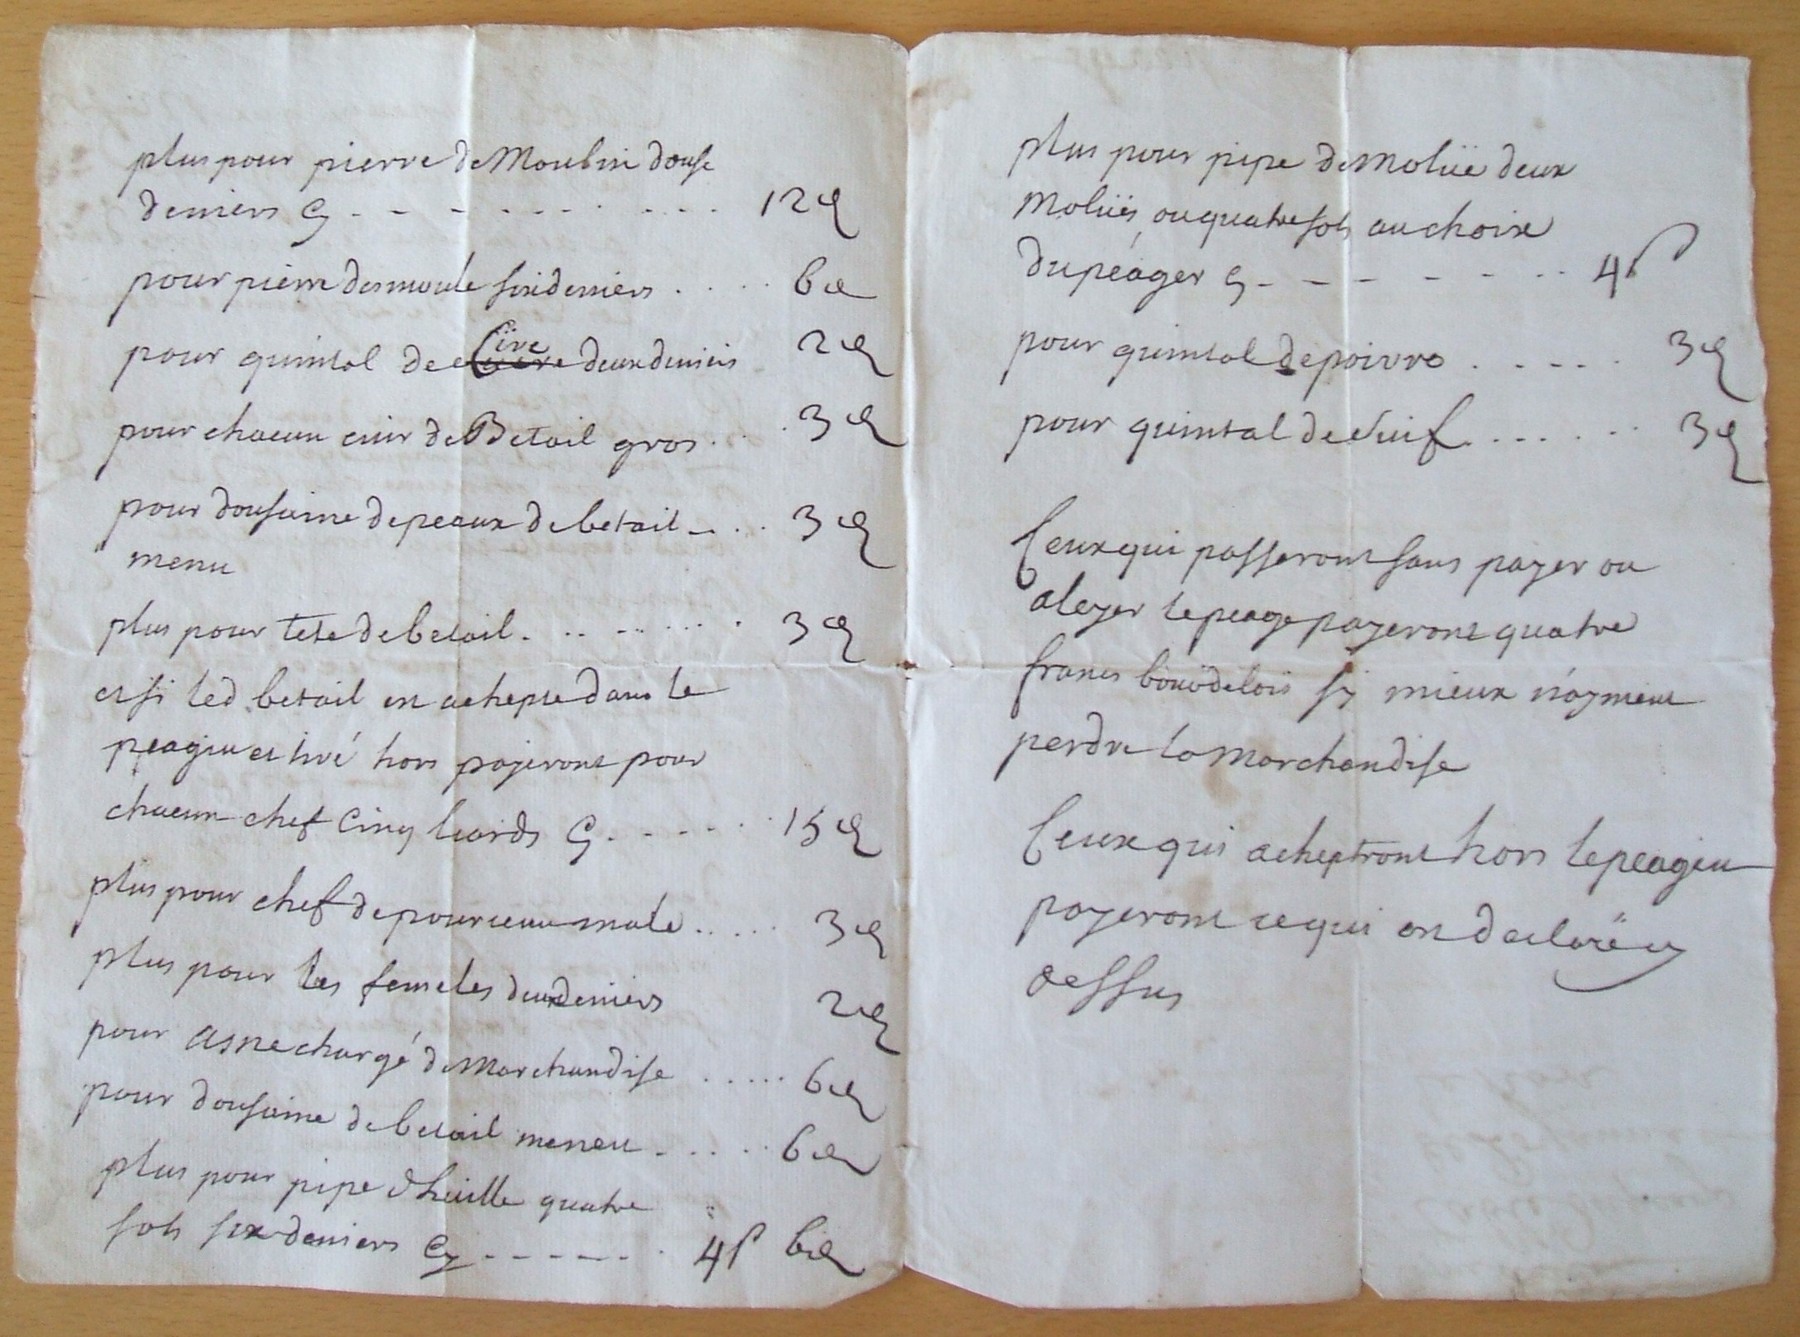 plus pour pierre de Moulin douse
deniers Cy - - - - - - - - - 12 d
pour pierre desmoule six deniers . . . . 6 d
pour quintal de Cire deux deniers 2 d
pour chacun cuir de Betail gros . . . 3 d
pour dousaine de peaux de betail - . . 3 d
menu
plus pour tete de betail . . . . . . . . 3 d
et si led betail en achepté dans le
peagiu et livé hors payeront pour
chacun chef Cinq liards Cy . - - - - . 15 d
plus pour chef de pourceau male . . . . . 3 d
plus pour les femeles deux deniers 2 d
pour asne chargé de Marchandise . . . . . 6 d
pour dousaine de betail meneu . . . . . 6 d
plus pour pipe d'huille quatre
sols six deniers Cy - - - - - - . 4 s 6 d
plus pour pipe de Moliie deux
Moliies ou quatre sols au choix
du péager Cy - - - - - - . . 4 s
pour quintal de poivre . . . . . 3 d
pour quintal de suif . . . . . . . 3 d
Ceux qui passeront sans payer ou
aleyer le peage payeront quatre
francs bourdelois sy mieux n'ayment
perdre la Marchandise
Ceux qui acheptront hors le peagiu
payeront ce qui en declaré cy
dessus